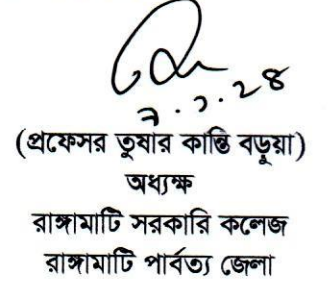 ৭.১.২৪
(প্রফেসর তুষার কান্তি বড়ুয়া)
অধ্যক্ষ
রাঙ্গামাটি সরকারি কলেজ
রাঙ্গামাটি পার্বত্য জেলা